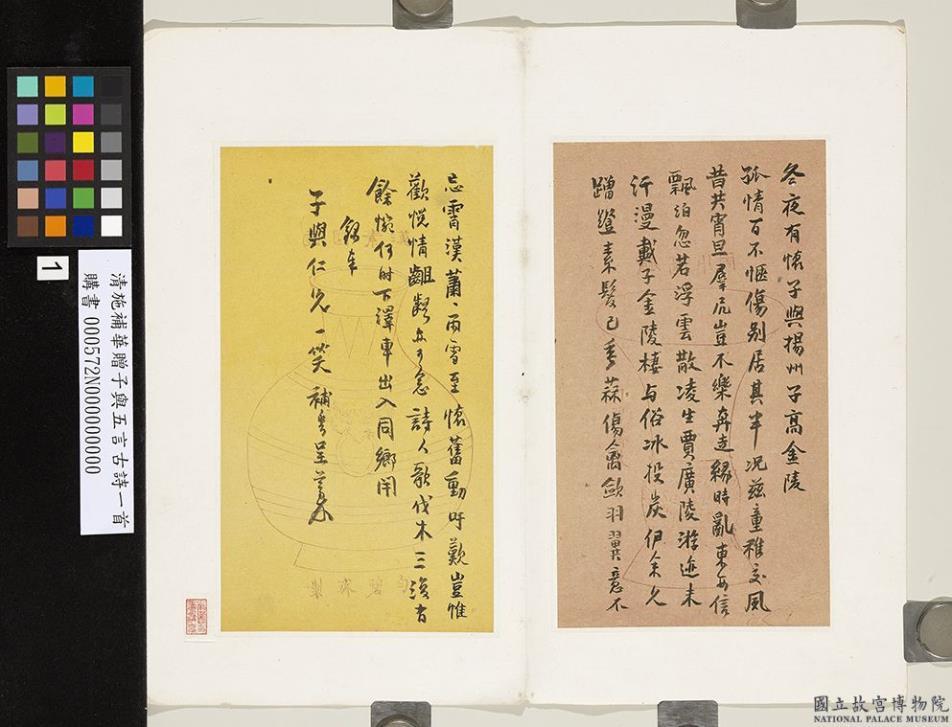 冬夜有懷子與揚州子高金陵
孤情百不愜傷別居其半況茲童稚交風
昔共宵旦羣居豈不樂奔走緣時亂東西信
飄泊忽若浮雲散凌生賈廣陵游迹未
汗漫戴子金陵棲与俗冰投炭伊余久
蹭蹬素髮已垂蒜傷禽斂羽翼意不
忘霄漢蕭〻雨雪至懷舊動吁歎豈惟
歡悅情齟齬亦可念詩人歌伐木三復有
餘惋何時下澤車出入同鄉閈
錄奉
子與仁兄一笑 補華呈草
清施補華贈子與五言古詩一首
購書 000572N000000000
1
國立故宮博物院
NATIONAL PALACE MUSEUM